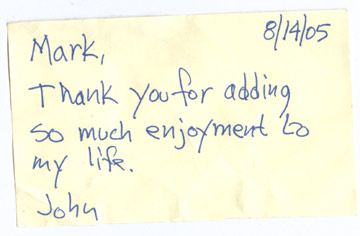 8/14/05
Mark,
Thank you for adding
so much enjoyment to
my life.
John